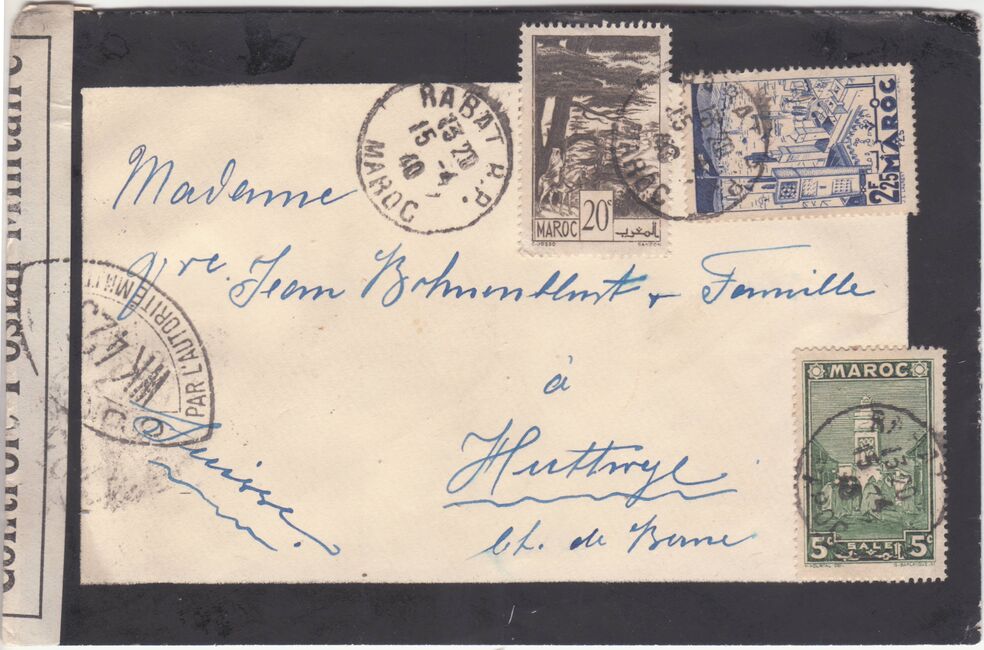 Contrôle Postal Militaire
RABAT R.P.
13 20
15 -4
40
MAROC
MAROC 20c المغرب
2F25 MAROC
POSTES
Madame
Vve. Jean Bohnenblust & Famille
à
Huttwyl
Ct. de Berne
Suisse.
PAR L'AUTORITÉ MILIT
WK 42
MAROC
5c SALE 5c